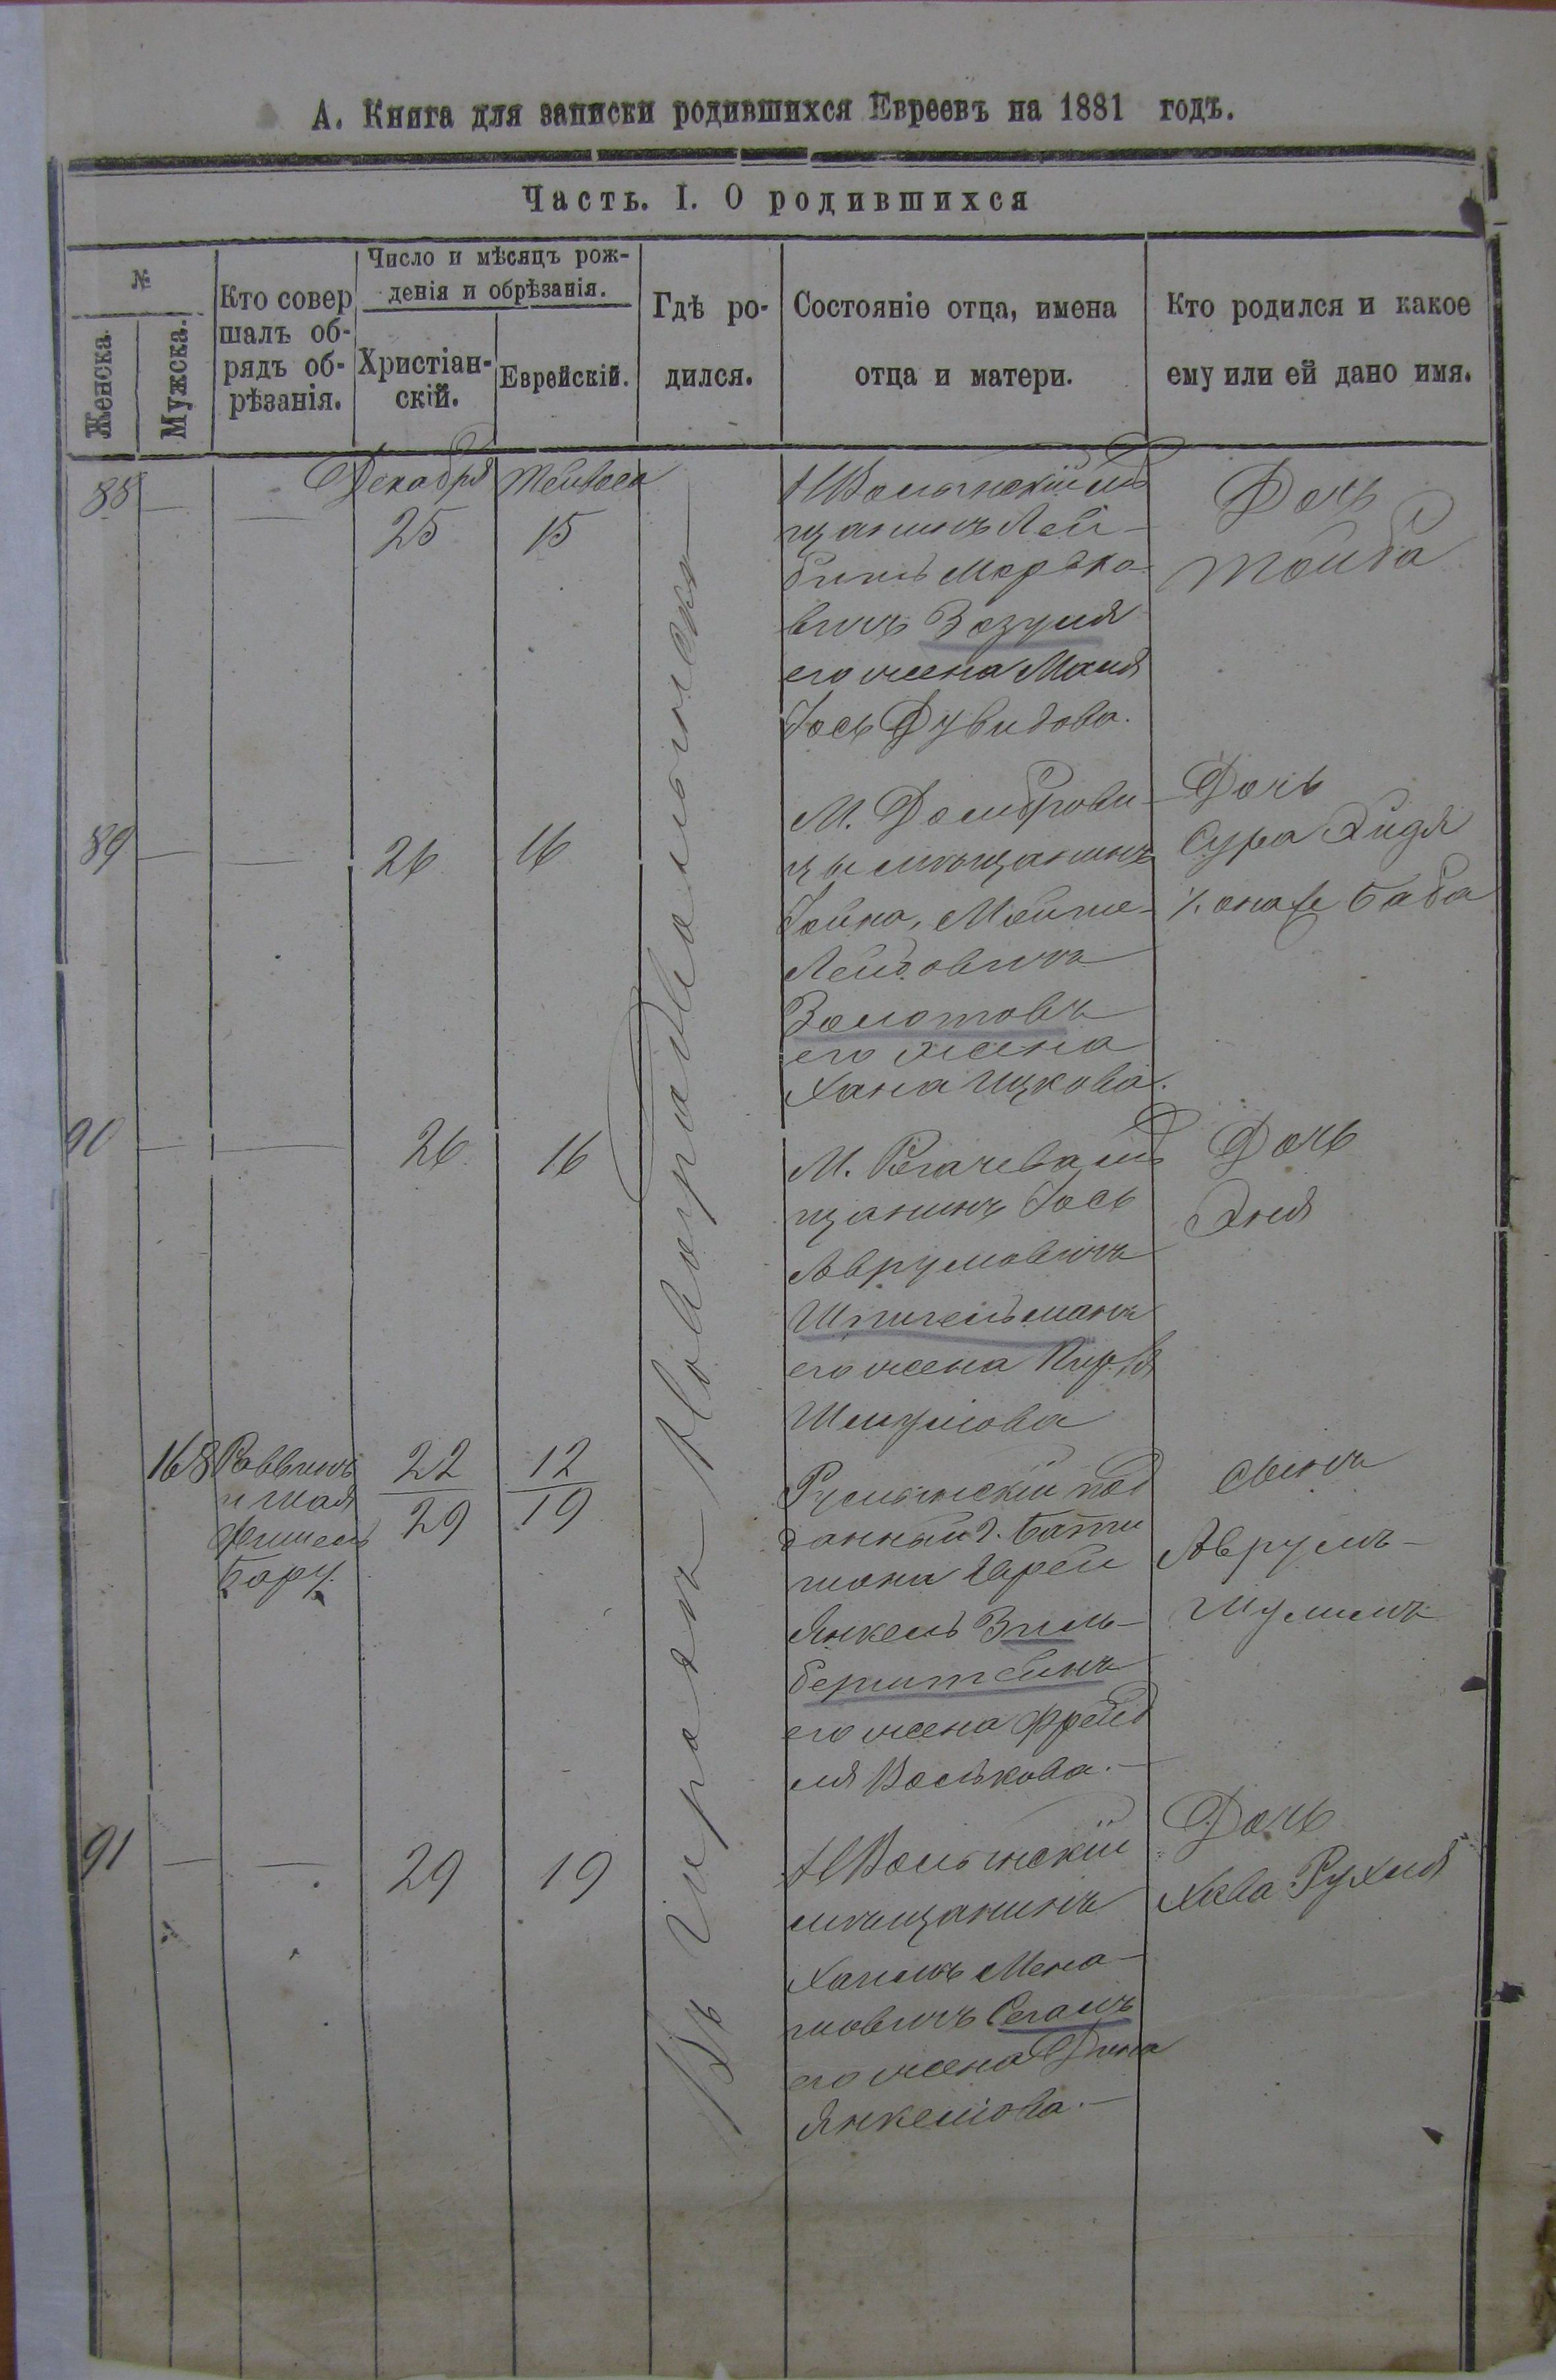 А. Книга для записки родившихся Евреевъ на 1881 годъ.
Часть. I. О родившихся
№
Женска.
Мужска.
Кто совер
шалъ об-
рядъ об-
рѣзанія.
Число и мѣсяцъ рож-
денія и обрѣзанія.
Христіан-
скій.
Еврейскій.
Гдѣ ро-
дился.
Состояніе отца, имена
отца и матери.
Кто родился и какое
ему или ей дано имя.
Декабря
Тейвеса
Въ городѣ Новоградволынскѣ
88
25
15
НВолынскій мѣ
щанинъ Лей-
бишъ Моръко-
вичъ Зозуля
его жена Маля
Іось Дувидова.
Дочь
Тойба
89
26
16
М. Домброви-
цы мѣщанинъ
Іойна, Мойше-
Лейбовичъ
Золотовъ
его жена
Хана Ицкова.
Дочь
Сура Хидя
она же Баба
90
26
16
М. Рогачева мѣ
щанинъ Іось
Аврумовичъ
Шпигельманъ
его жена Перля
Шмулова
Дочь
Эня
168
Раввинъ
и Шая
Фишель
Бару
22
29
12
19
Румынскій под
данный г. Бати
шана Герш
Янкель Зиль-
берштейнъ
его жена Фрейд
ля Волькова.
Сынъ
Аврумъ-
Шулимъ
91
29
19
НВолынскій
мѣщанинъ
Хаимъ Мена-
шовичъ Сегалъ
его жена Дина
Янкелева.
Дочь
Хава Рухля